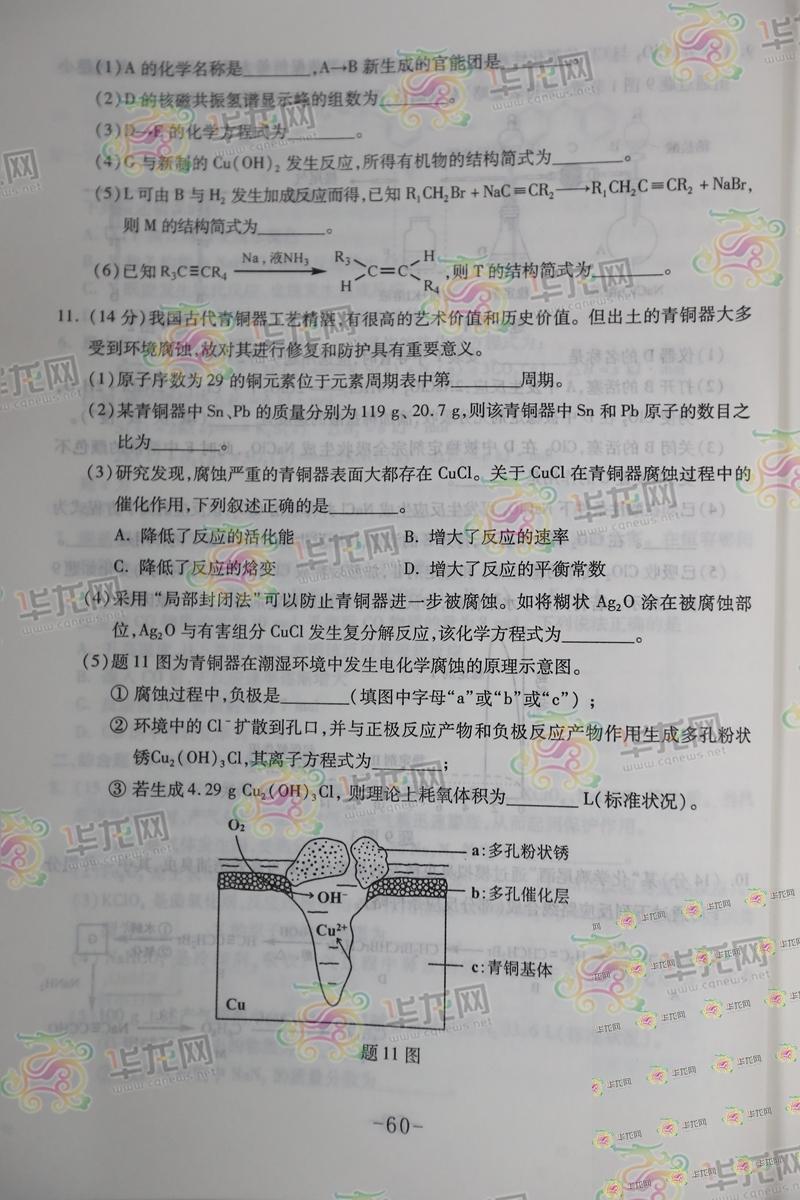 (1)A 的化学名称是______,A→B 新生成的官能团是______。
(2)D 的核磁共振氢谱显示峰的组数为______。
(3)D→E 的化学方程式为______。
(4)G 与新制的 Cu(OH)₂ 发生反应,所得有机物的结构简式为______。
(5)L 可由 B 与 H₂ 发生加成反应而得,已知 R₁CH₂Br + NaC≡CR₂→R₁CH₂C≡CR₂ + NaBr,
则 M 的结构简式为______。
(6)已知 R₃C≡CR₄ Na,液NH₃ → R₃ H C=C H R₄ ,则 T 的结构简式为______。
11. (14 分)我国古代青铜器工艺精湛,有很高的艺术价值和历史价值。但出土的青铜器大多
受到环境腐蚀,故对其进行修复和防护具有重要意义。
(1)原子序数为 29 的铜元素位于元素周期表中第______周期。
(2)某青铜器中 Sn、Pb 的质量分别为 119 g、20.7 g,则该青铜器中 Sn 和 Pb 原子的数目之
比为______。
(3)研究发现,腐蚀严重的青铜器表面大都存在 CuCl。关于 CuCl 在青铜器腐蚀过程中的
催化作用,下列叙述正确的是______。
A. 降低了反应的活化能 B. 增大了反应的速率
C. 降低了反应的焓变 D. 增大了反应的平衡常数
(4)采用“局部封闭法”可以防止青铜器进一步被腐蚀。如将糊状 Ag₂O 涂在被腐蚀部
位,Ag₂O 与有害组分 CuCl 发生复分解反应,该化学方程式为______。
(5)题 11 图为青铜器在潮湿环境中发生电化学腐蚀的原理示意图。
① 腐蚀过程中,负极是______(填图中字母“a”或“b”或“c”);
② 环境中的 Cl⁻扩散到孔口,并与正极反应产物和负极反应产物作用生成多孔粉状
锈Cu₂(OH)₃Cl,其离子方程式为______;
③ 若生成 4.29 g Cu₂(OH)₃Cl, 则理论上耗氧体积为______ L(标准状况)。
O₂
a:多孔粉状锈
OH⁻
b:多孔催化层
Cu²⁺
c:青铜基体
Cu
题 11 图
-60-
华龙网
www.cqnews.net